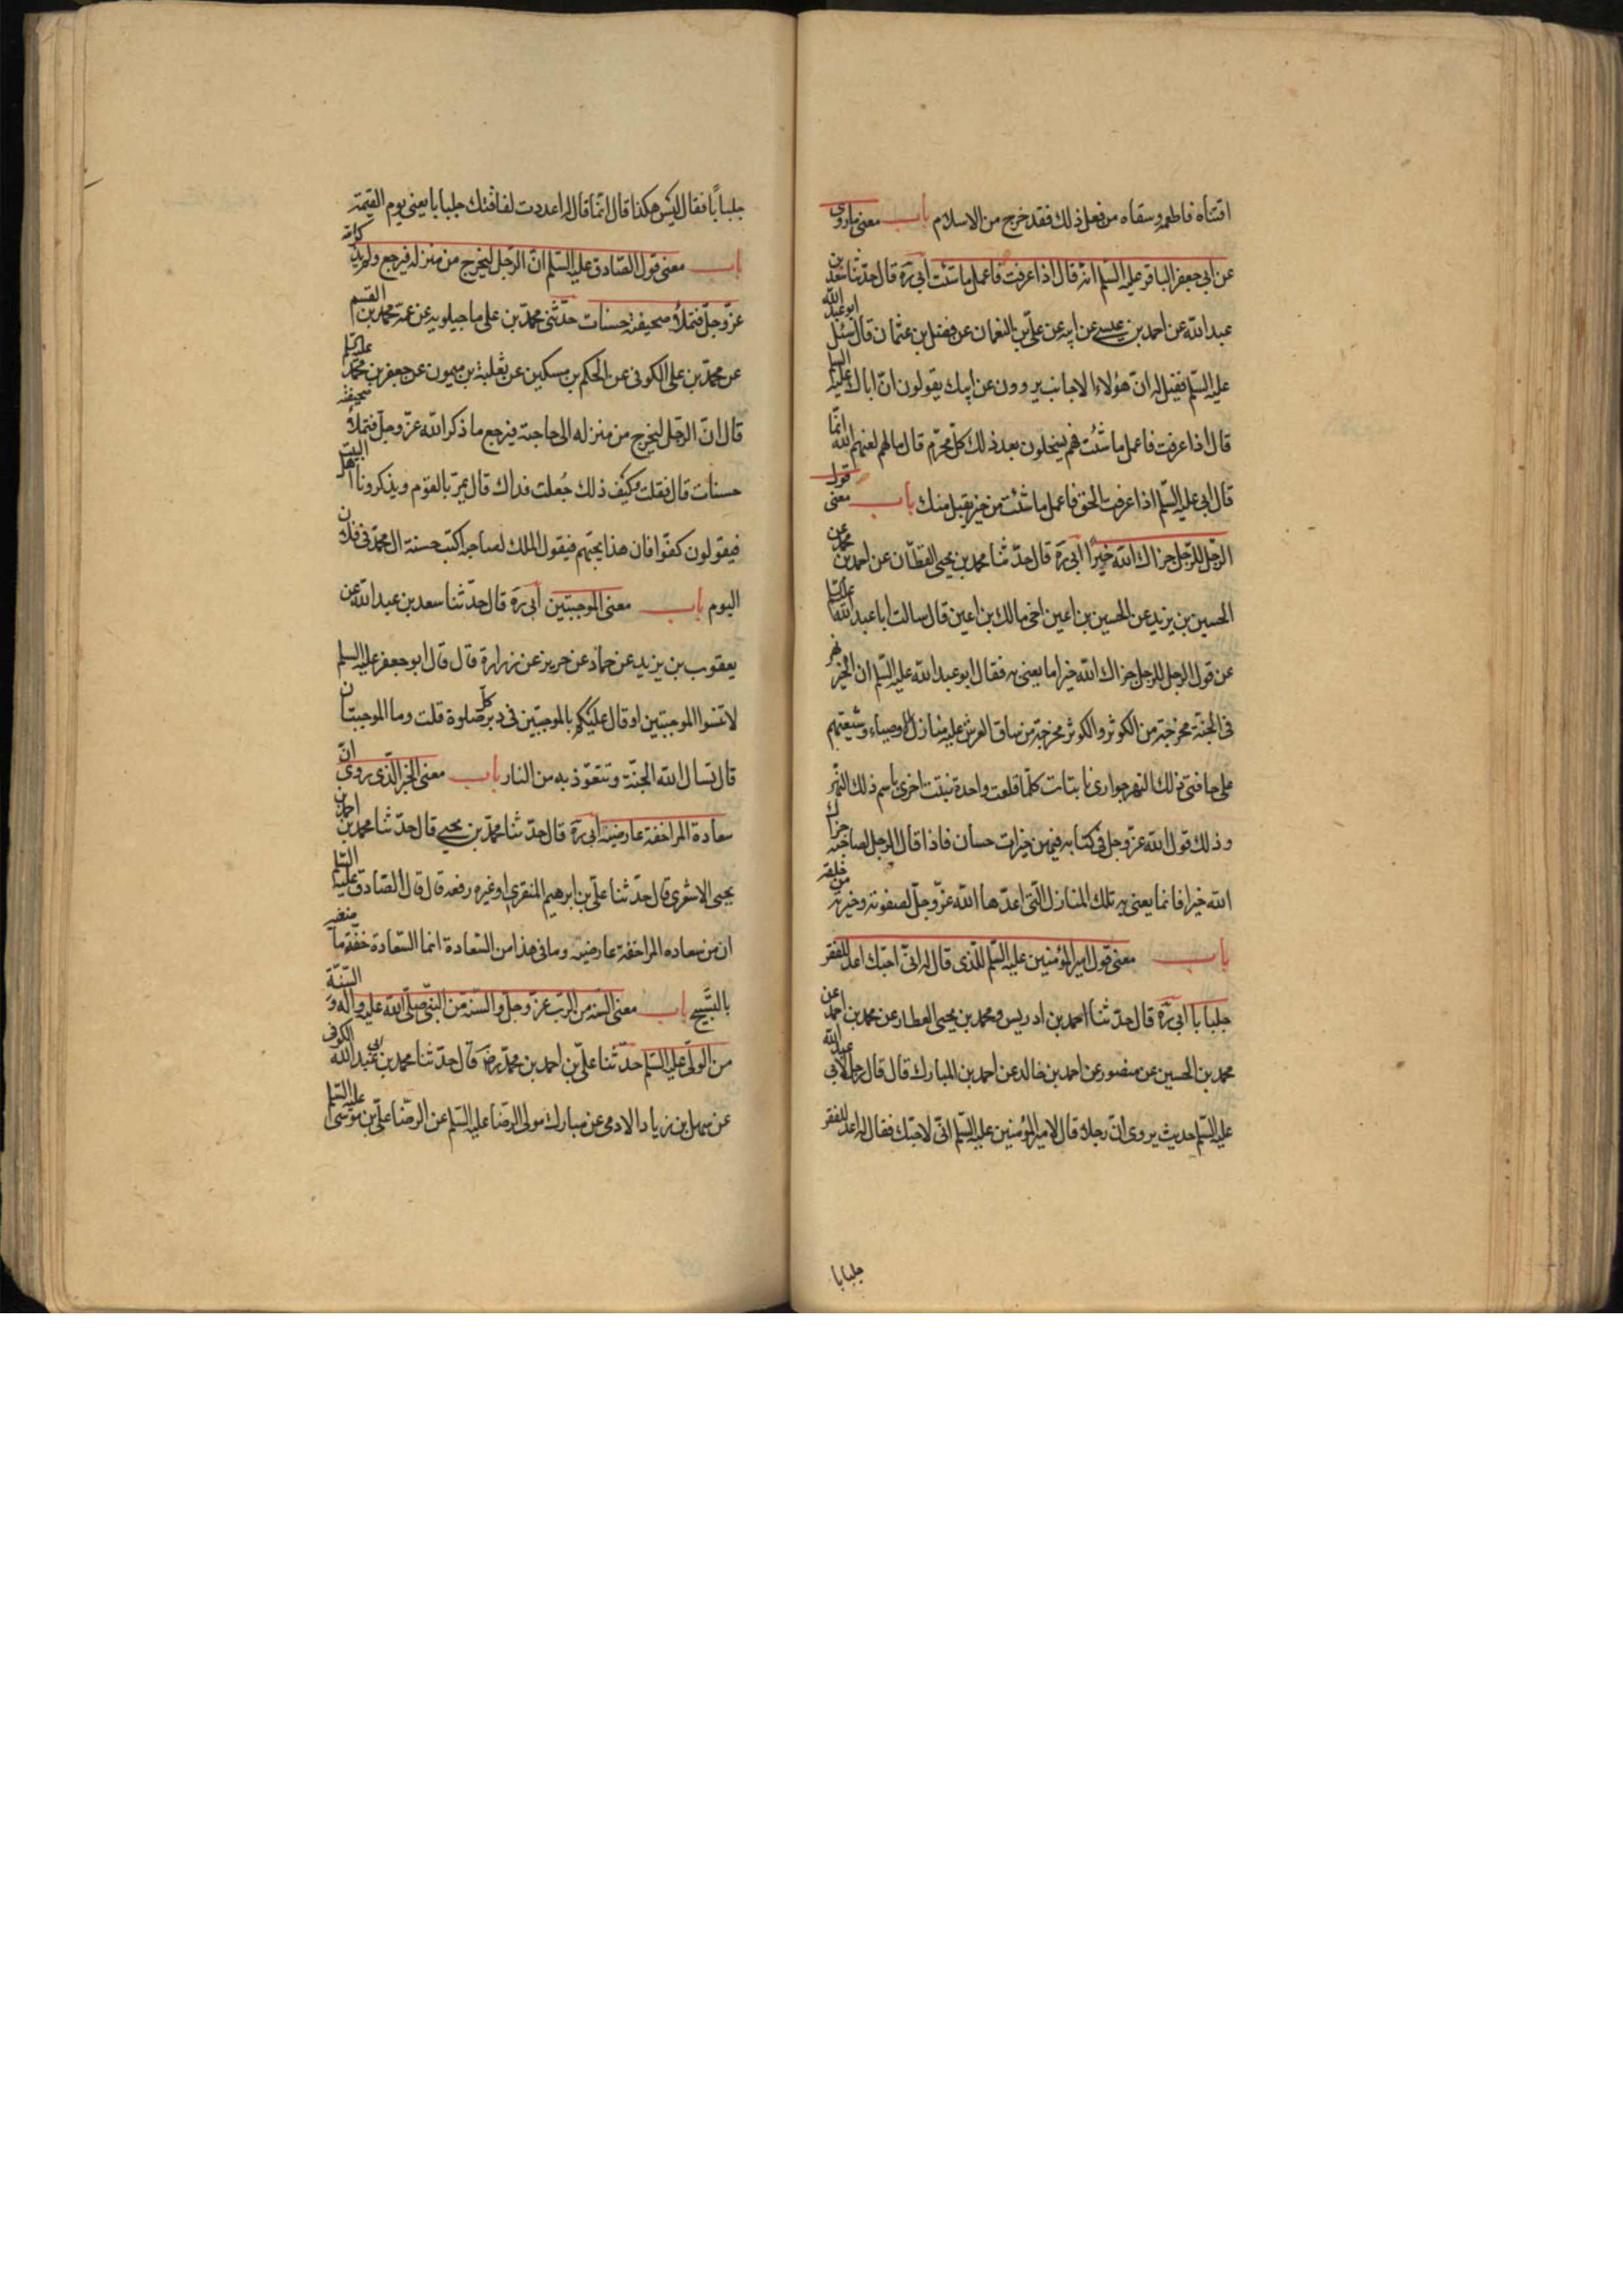 افتناه فاطعمه وسقاه من فعل ذلك فقد خرج من الاسلام باب معنى ما روى
عن ابي جعفر الباقر عليه السلم انه قال اذا عرفت فاعمل ما شئت ابي ره قال حدثنا سعد بن
عبد الله عن احمد بن عيسى عن ابيه عن علي بن النعمان عن فضيل بن عثمان قال سئل ابو عبد الله
عليه السلم فقيل له ان هؤلاء الاجانب يروون عن ابيك يقولون ان اباك عليه السلم
قال اذا عرفت فاعمل ما شئت فهم يستحلون بعد ذلك كل محرم قال ما لهم لعنهم الله انما
قال ابي عليه السلم اذا عرفت الحق فاعمل ما شئت من خير يقبل منك باب معنى قول
الرجل للرجل جزاك الله خيرًا ابي ره قال حدثنا محمد بن يحيى العطار عن احمد بن محمد عن
الحسين بن يزيد عن الحسين بن اعين اخي مالك بن اعين قال سالت ابا عبد الله عليه السلم
عن قول الرجل للرجل جزاك الله خيرا ما يعني به فقال ابو عبد الله عليه السلم ان الخير نهر
في الجنة مخرجه من الكوثر والكوثر مخرجه من ساق العرش عليه منازل الاوصياء وشيعتهم
على حافتي ذلك النهر جواري نابتات كلما قلعت واحدة نبتت اخرى باسم ذلك النهر
وذلك قول الله عز وجل في كتابه فيهن خيرات حسان فاذا قال الرجل لصاحبه جزاك
الله خيرا فانما يعني به تلك المنازل التي اعدها الله عز وجل لصفوته وخيرته من خلقه
باب معنى قول امير المؤمنين عليه السلم للذي قال له اني احبك اعد للفقر
جلبابا ابي ره قال حدثنا احمد بن ادريس ومحمد بن يحيى العطار عن محمد بن احمد عن
محمد بن الحسين عن منصور عن احمد بن خالد عن احمد بن المبارك قال قال رجل لابي عبد الله
عليه السلم حديث يروى ان رجلا قال لامير المؤمنين عليه السلم اني لاحبك فقال له اعد للفقر
جلبابا
جلبابًا فقال ليس هكذا قال انما قال له اعددت لفاقتك جلبابا يعني يوم القيمة
باب معنى قول الصادق عليه السلم ان الرجل ليخرج من منزله فيرجع ولم يذكر الله
عز وجل فتملأ صحيفته حسنات حدثني محمد بن علي ماجيلويه عن عمه محمد بن القسم
عن محمد بن علي الكوفي عن الحكم بن مسكين عن ثعلبة بن ميمون عن جعفر بن محمد عليه السلم
قال ان الرجل ليخرج من منزله الى حاجته فيرجع ما ذكر الله عز وجل فتملأ صحيفته
حسنات قال فقلت وكيف ذلك جُعلت فداك قال يمر بالقوم ويذكرونا اهل البيت
فيقولون كفوا فان هذا يحبهم فيقول الملك لصاحبه اكتب حسنة ال محمد في فلان
اليوم باب معنى الموجبتين ابي ره قال حدثنا سعد بن عبد الله عن
يعقوب بن يزيد عن حماد عن حريز عن زرارة قال قال ابو جعفر عليه السلم
لا تنسوا الموجبتين او قال عليكم بالموجبتين في دبر كل صلوة قلت وما الموجبتان
قال تسال الله الجنة وتتعوذ به من النار باب معنى الخبر الذي روي ان
سعادة المرء خفة عارضيه ابي ره قال حدثنا محمد بن يحيى قال حدثنا محمد بن احمد بن
يحيى الاشعري قال حدثنا علي بن ابرهيم المنقري او غيره رفعه قال قال الصادق عليه السلم
ان من سعاده المرء خفة عارضيه وما في هذا من السعادة انما السعادة خفة ماضغيه
بالتسبيح باب معنى السنة من الرب عز وجل والسنة من النبي صلى الله عليه واله والسنة
من الولي عليه السلم حدثنا علي بن احمد بن محمد رضه قال حدثنا محمد بن ابي عبد الله الكوفي
عن سهل بن زياد الادمي عن مبارك مولى الرضا عليه السلم عن الرضا علي بن موسى عليه السلم